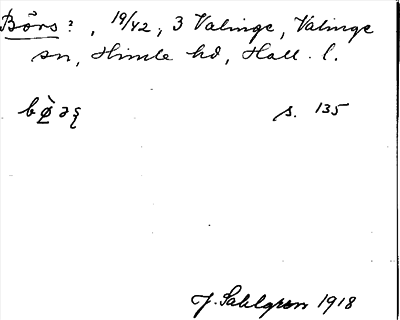 Börs?, 19/42, 3 Valinge, Valinge
sn, Himle hd, Hall. l.
s. 135
J. Sahlgren 1918